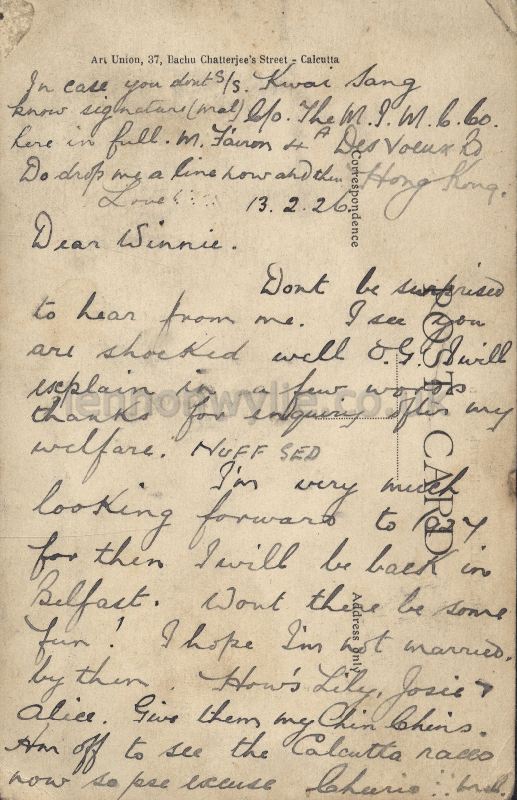 Art Union, 37, Bachu Chatterjee's Street - Calcutta
In case you dont S/S. Kwai Sang
know signature (mal) C/o. The M. I. M. C. Co.
here in full. M. 4A Des Voeux Rd
Do drop me a line now and then Hong Kong.
Love 13.2.26.
Correspondence
Dear Winnie.
Dont be surprised
to hear from me. I see you
are shocked well O.G. I will
explain in a few words
thanks for inquiry after my
welfare. NUFF SED
I'm very much
looking forward to 1927
for then I will be back in
Belfast. Wont there be some
fun! I hope I'm not married
by then. How's Lily, Josie &
Alice. Give them my Chin Chins.
Am off to see the Calcutta races
now so pse excuse Cheerio
POST CARD
Address only
lennoxwylie.co.uk